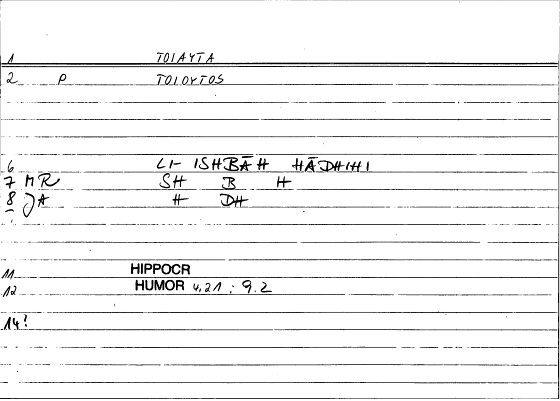 1 TOIAYTA
2 P TOIOYTOS
6 LI- ISHBĀH HĀDHIHI
7 MR SH B H
8 JA H DH
11 HIPPOCR
12 HUMOR 4,21 ; 9.2
14?